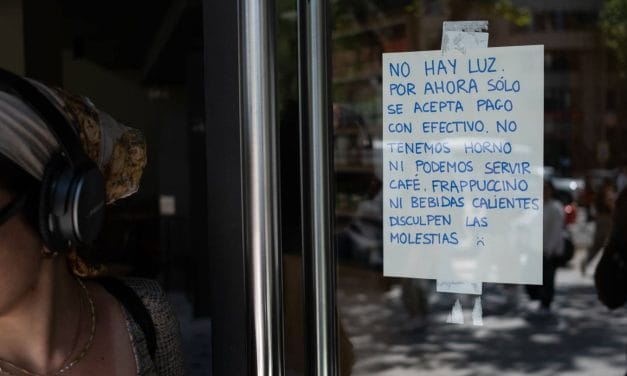 NO HAY LUZ.
POR AHORA SÓLO
SE ACEPTA PAGO
CON EFECTIVO. NO
TENEMOS HORNO
NI PODEMOS SERVIR
CAFÉ. FRAPPUCCINO
NI BEBIDAS CALIENTES
DISCULPEN LAS
MOLESTIAS :(